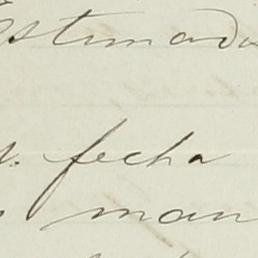 Estimada
fecha
man